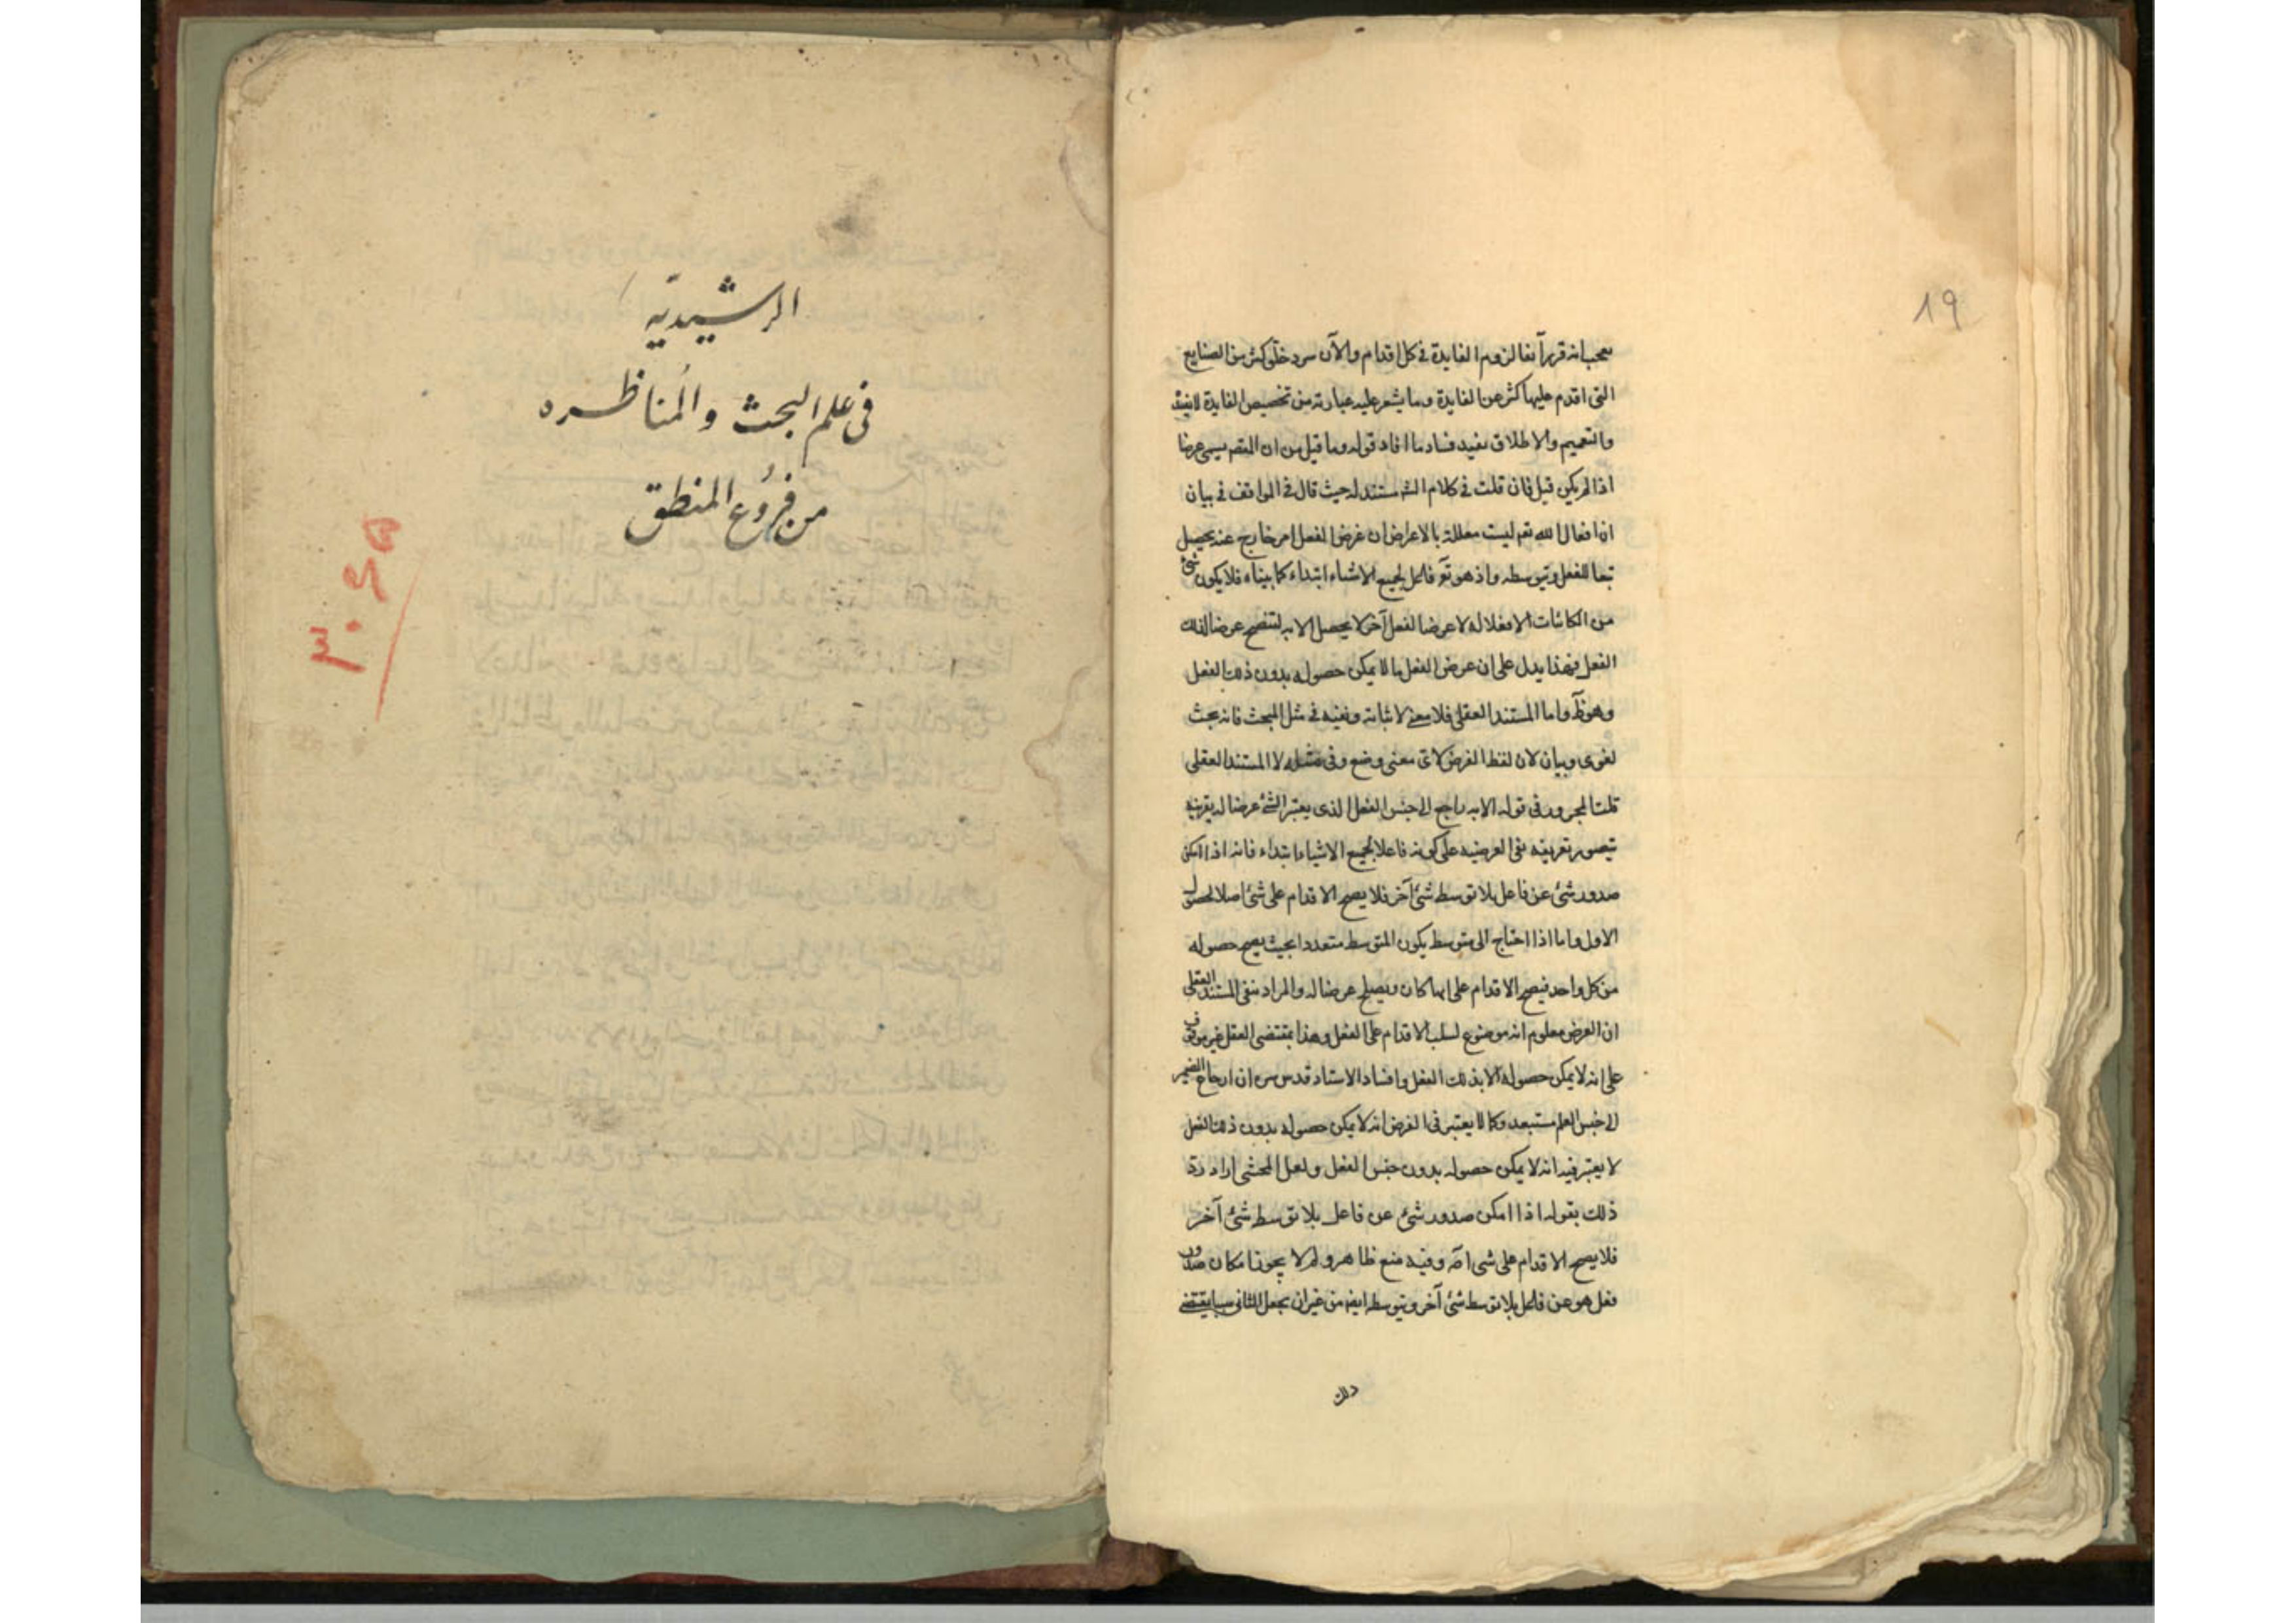 19
عجب انه قرر آنفا لزوم الفايدة في كل اقدام والآن سرد خلو كثير من الصنايع
التى اقدم عليها كثر عن الفايدة وما يشعر عليه عبارته من تخصيص الفايدة لا يفيد
والتعميم والاطلاق يفيد فساد ما افاد قوله وما قيل من ان المقصر يسمى عرضا
اذا لم يكن قيل فان قلت في كلام الشر مستند له حيث قال في المواقف في بيان
ان افعال الله تعم ليست معللة بالاعراض ان غرض الفعل امر خارج عنه يحصل
تبعا للفعل وبتوسطه واذ هو تع فاعل لجميع الاشياء ابتداء كما بيناه فلا يكون شئ
من الكائنات الا فعلا له لا عرضا لفعل آخر لا يحصل الا به ليصح عرضا لذلك
الفعل فهذا يدل على ان عرض الفعل ما لا يمكن حصوله بدون ذلك الفعل
وهو ظ واما المستند العقلى فلا معنى لاثباته ونفيه في مثل المبحث فانه بحث
لغوى وبيان لان لفظ الغرض لاى معنى وضع وفى مثله لا المستند العقلى
قلت المجرور فى قوله الا به راجع الى جنس الفعل الذى يعتبر الشئ عرضا له بقرينة
تصوير تعريفه نفى العرضيه على كونه فاعلا لجميع الاشياء ابتداء فانه اذا امكن
صدور شئ عن فاعل بلا توسط شئ آخر فلا يصح الاقدام على شئ اصلا لحصول
الاول واما اذا احتاج الى متوسط يكون المتوسط متعددا بحيث يصح حصوله
من كل واحد فيصح الاقدام على ايها كان ويصلح عرضا له والمراد بنفى المستند العقلى
ان العرض معلوم انه موضوع لسلب الاقدام على الفعل وهذا بمقتضى العقل غير موقوف
على انه لا يمكن حصوله الا بذلك الفعل وافاد الاستاد قدس سره ان ارجاع الضمير
الى جنس العلم مستبعد وكما لا يعتبر فى الغرض انه لا يمكن حصوله بدون ذلك الفعل
لا يعتبر فيه انه لا يمكن حصوله بدون جنس الفعل ولعل المحشى اراد رد
ذلك بقوله اذا امكن صدور شئ عن فاعل بلا توسط شئ آخر
فلا يصح الاقدام على شى اه وفيه منع ظاهر ولم لا يجوز امكان صدور
فعل هو عن فاعل بلا توسط شئ آخر وبتوسط ايض من غير ان يجعل للثانى سببا يقتضى
ذلك
الرشيدية
فى علم البحث والمناظره
من فروع المنطق
٣٠٤٥